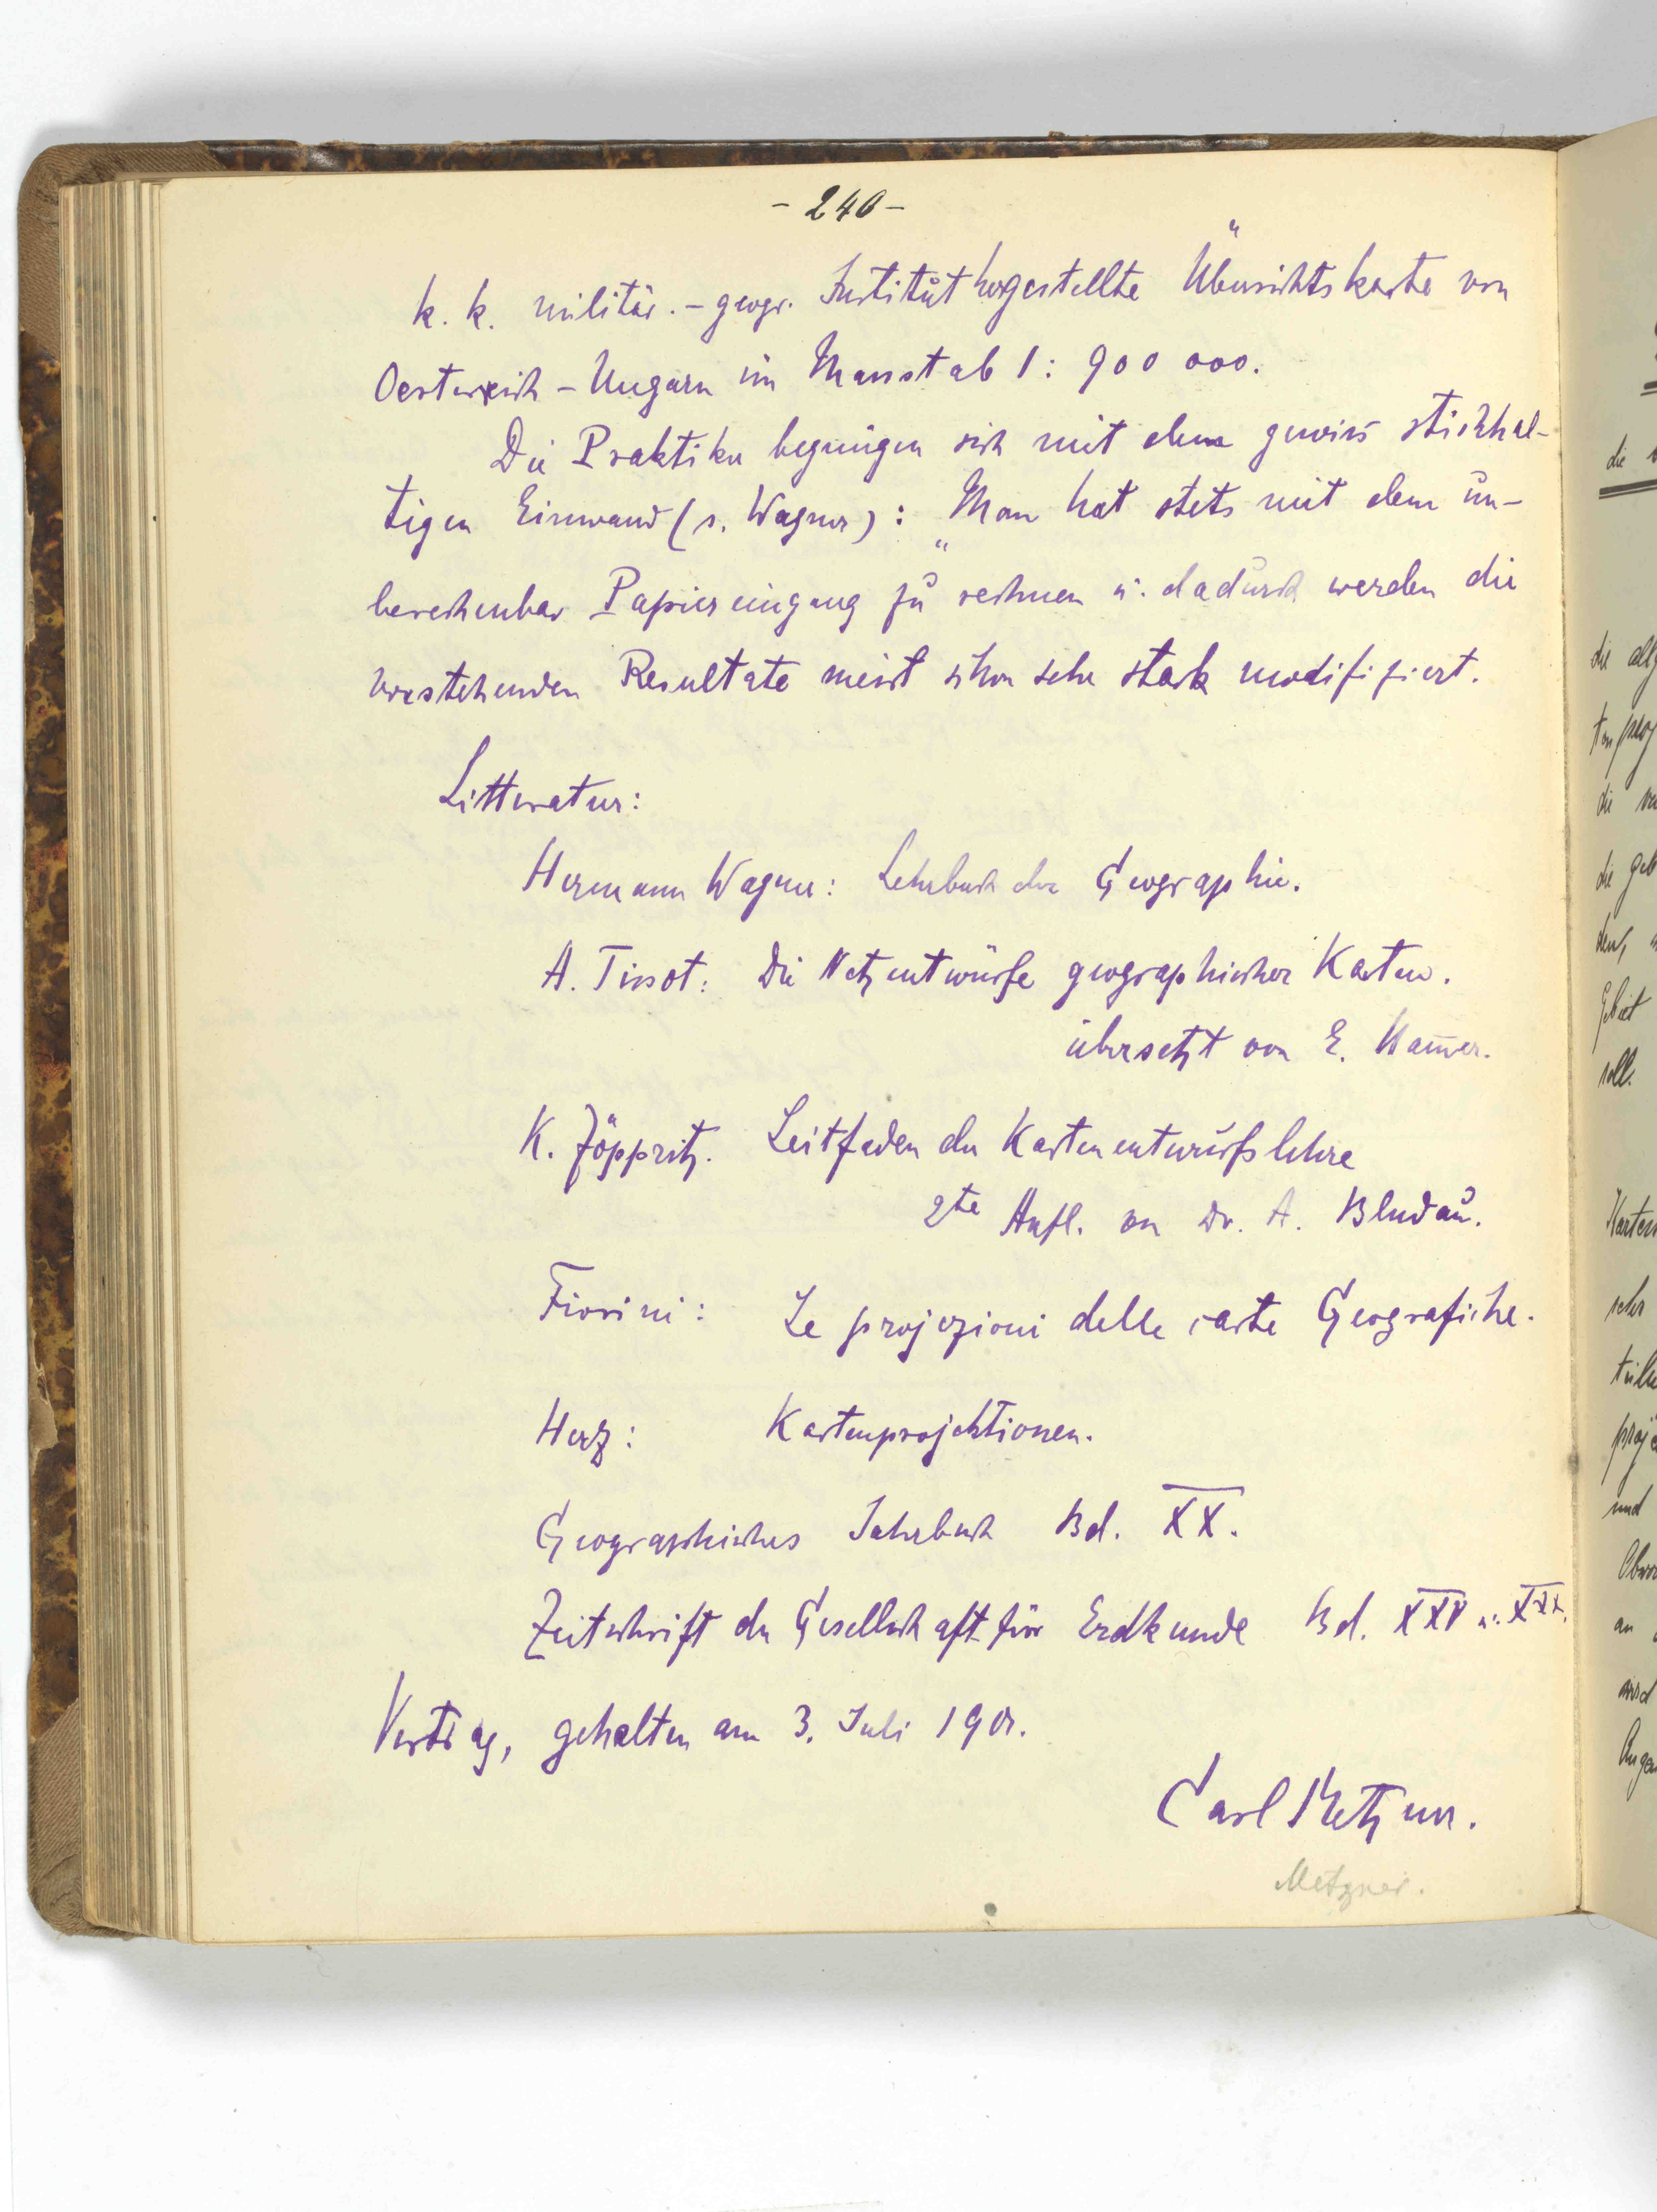 - 240 -
k. k. militär. - geogr. Institut hergestellte Übersichtskarte von
Oesterreich - Ungarn im Massstab 1 : 900 000.
Die Praktiker begnügen sich mit dem gewiss stichhal-
tigen Einwand (s. Wagner) : „Man hat stets mit dem un-
berechenbar Papiereingang zu rechnen u. dadurch werden die
vorstehenden Resultate meist schon sehr stark modifiziert.
Litteratur:
Hermann Wagner: Lehrbuch der Geographie.
A. Tissot: Die Netzentwürfe geographischer Karten.
übersetzt von E. Ham̅er.
K. Zöppritz. Leitfaden der Kartenentwurfslehre
2te Aufl. von Dr. A. Bludau.
Fiorini: Le projezioni delle carte Geografiche.
Herz: Kartenprojektionen.
Geographisches Jahrbuch Bd. XX.
Zeitschrift der Gesellschaft für Erdkunde Bd. XXV u. XIX.
Vortrag, gehalten am 3. Juli 1901.
Carl Metzner.
Metzner.
die
die allg
die
die geb
Gebiet
soll.
Karten
und
an
wird